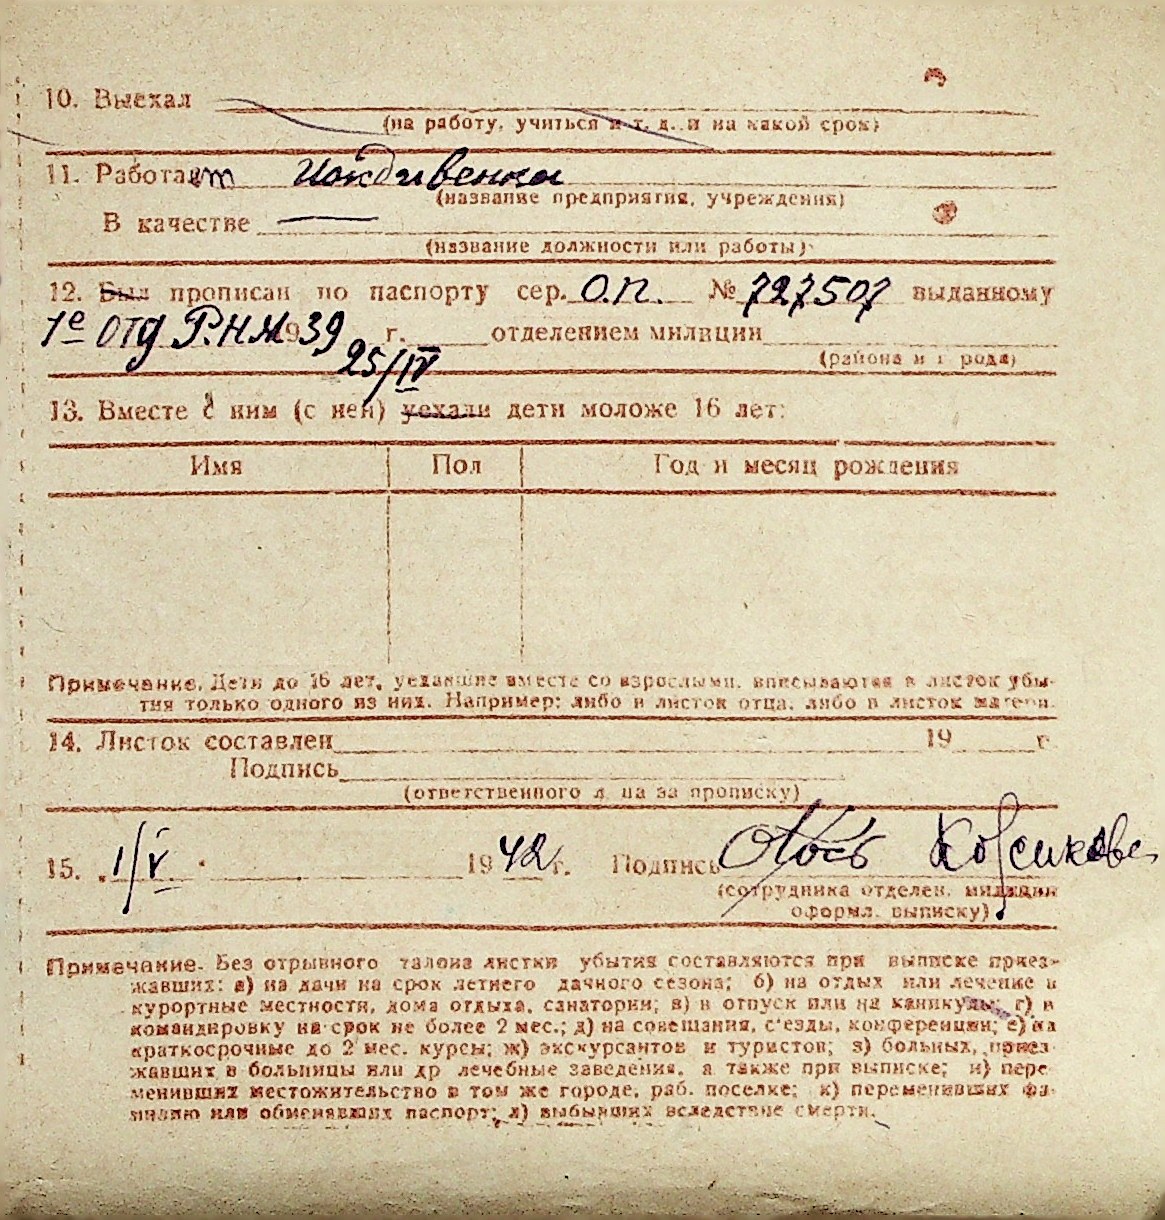 10. Выехал
(на работу, учиться и т. д. и на какой срок)
11. Работает иждивенка
(название предприятия, учреждения)
В качестве —
(название должности или работы)
12. Был прописан по паспорту сер. О.П. № 727507 выданному
1е отд Р.К.М 1939 г. отделением милиции
25/IV (района и города)
13. Вместе с ним (с ней) уехали дети моложе 16 лет:
Имя Пол Год и месяц рождения
Примечание. Дети до 16 лет, уехавшие вместе со взрослыми, вписываются в листок убы-
тия только одного из них. Например: либо в листок отца, либо в листок матери.
14. Листок составлен 19 г.
Подпись
(ответственного лица за прописку)
15. 1/V 1942 г. Подпись
(сотрудника отделен. милиции
оформл. выписку)
Примечание. Без отрывного талона листки убытия составляются при выписке приез-
жавших: а) на дачи на срок летнего дачного сезона; б) на отдых или лечение в
курортные местности, дома отдыха, санатории; в) в отпуск или на каникулы; г) в
командировку на срок не более 2 мес.; д) на совещания, с'езды, конференции; е) на
краткосрочные до 2 мес. курсы; ж) экскурсантов и туристов; з) больных, приез-
жавших в больницы или др лечебные заведения, а также при выписке; и) пере-
менивших местожительство в том же городе, раб. поселке; к) переменивших фа-
милию или обменявших паспорт; л) выбывших вследствие смерти.